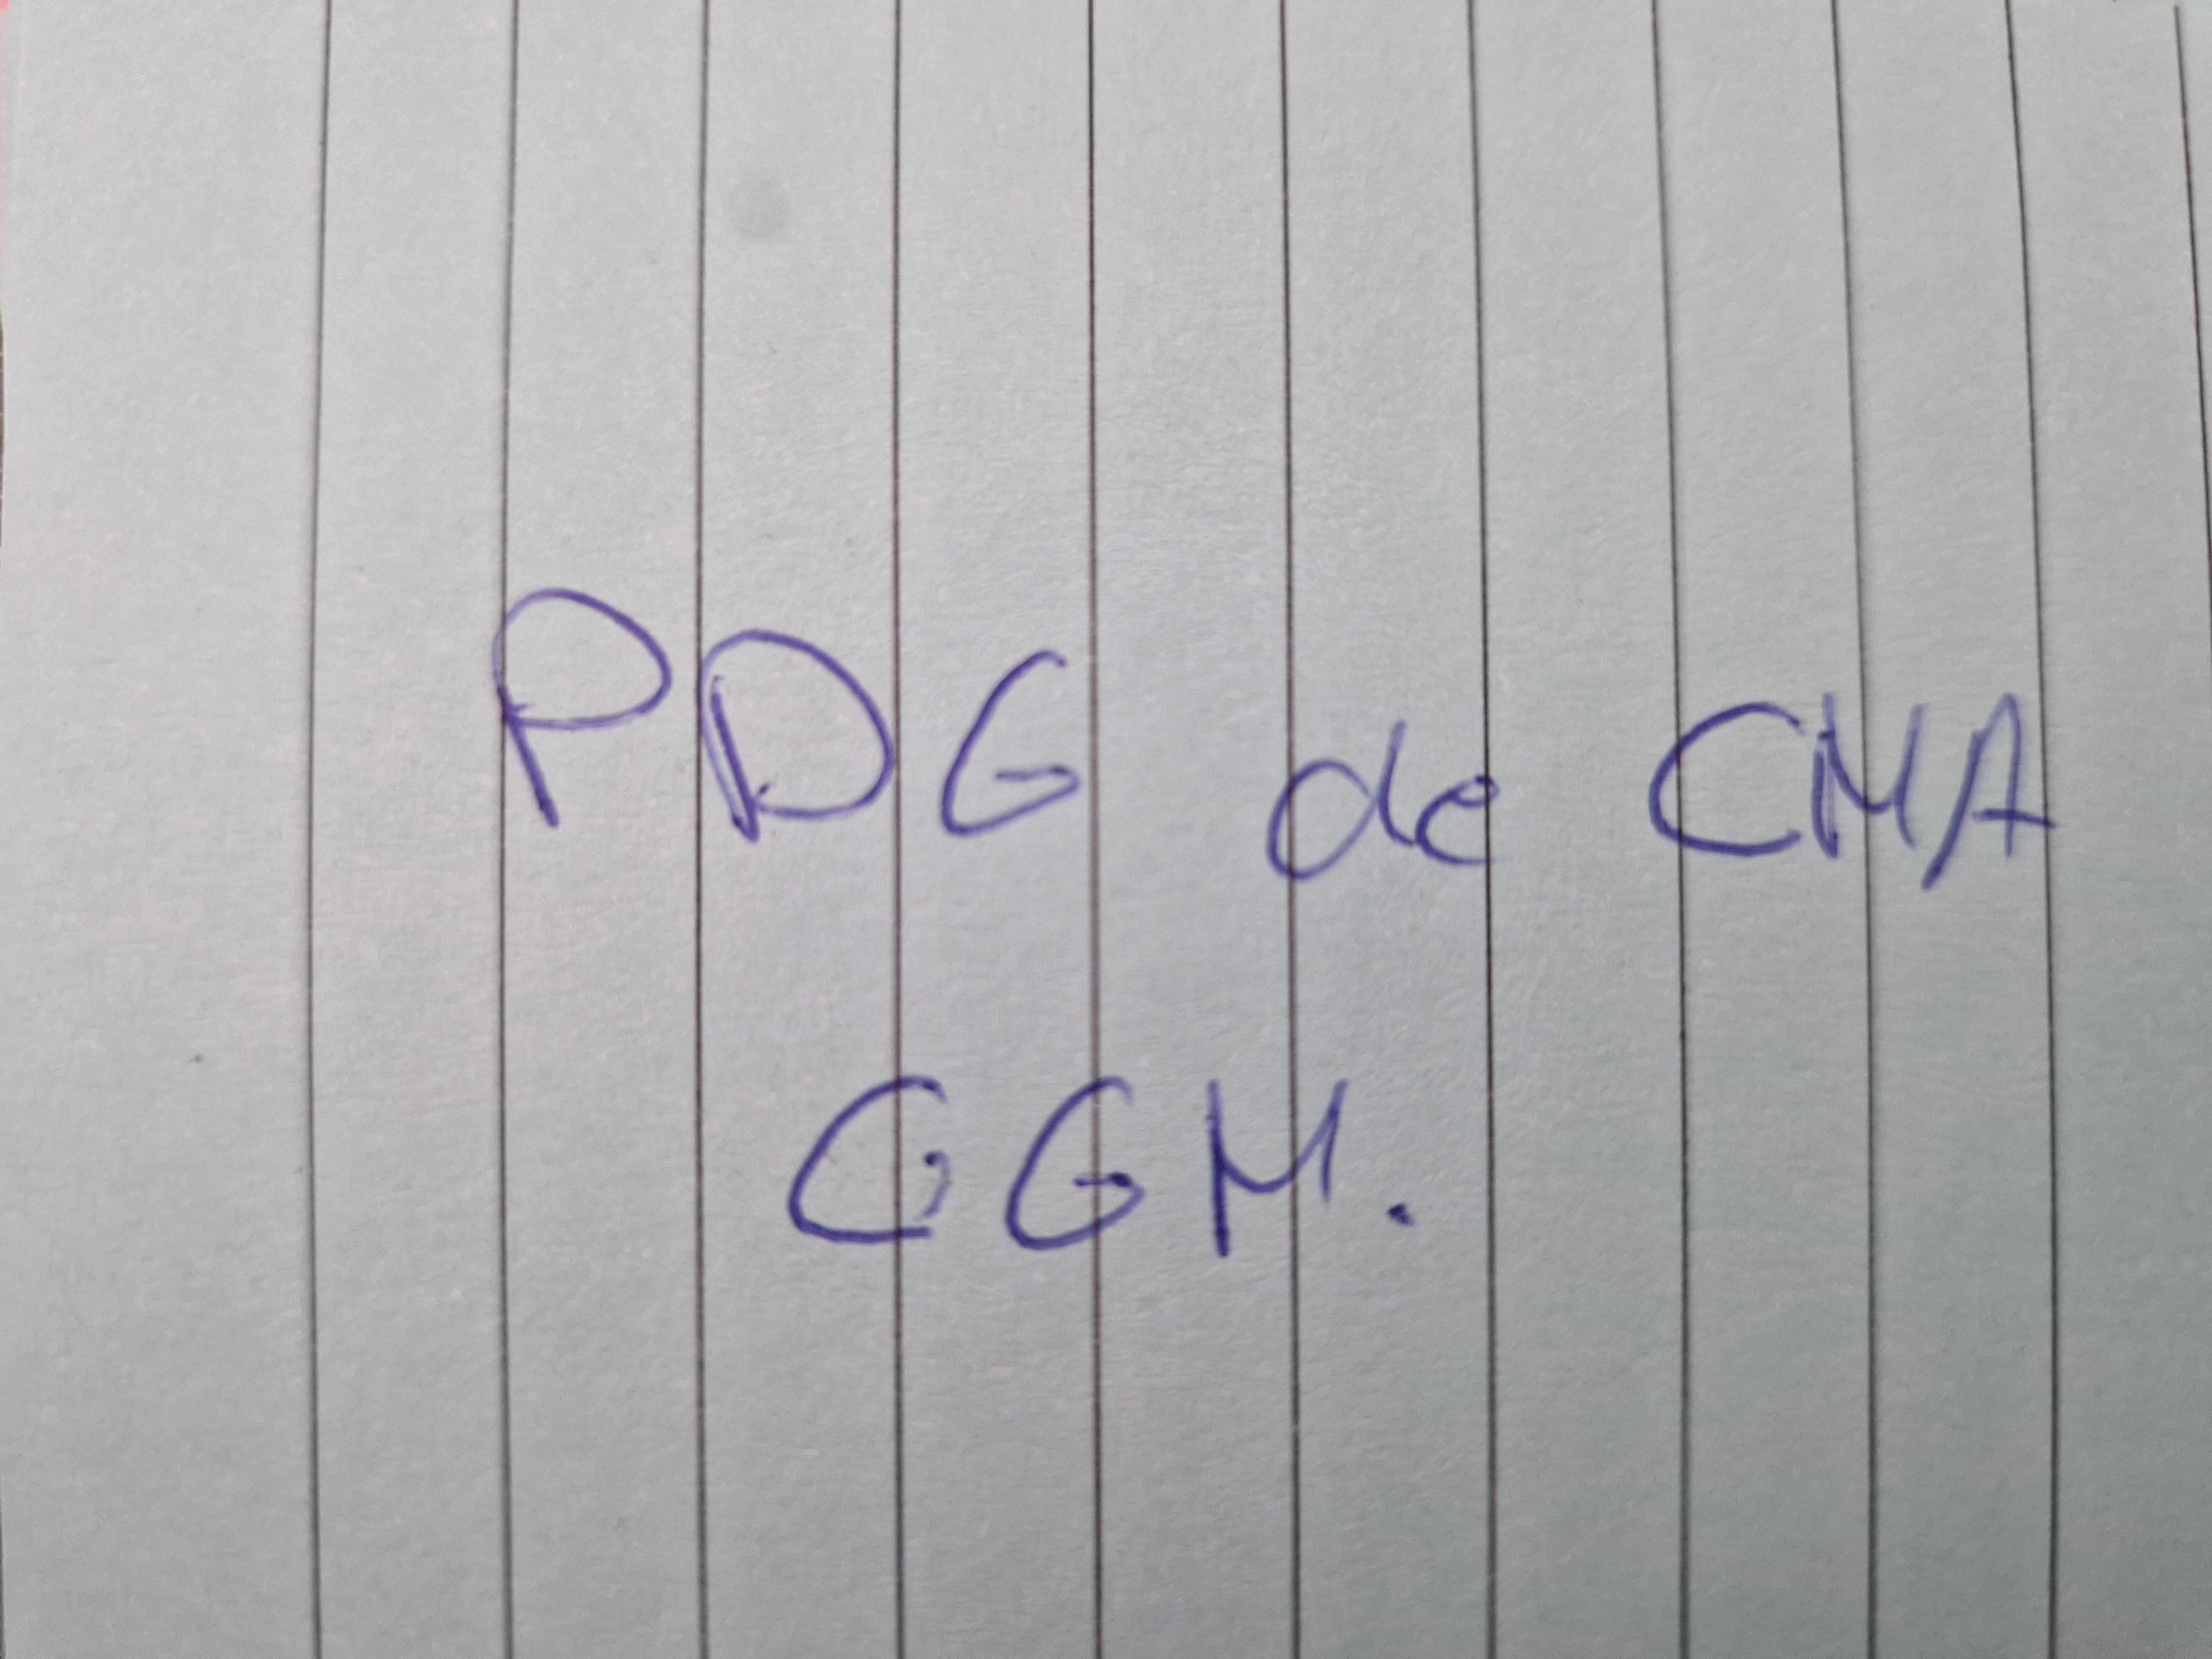 PDG de CMA
CGM.